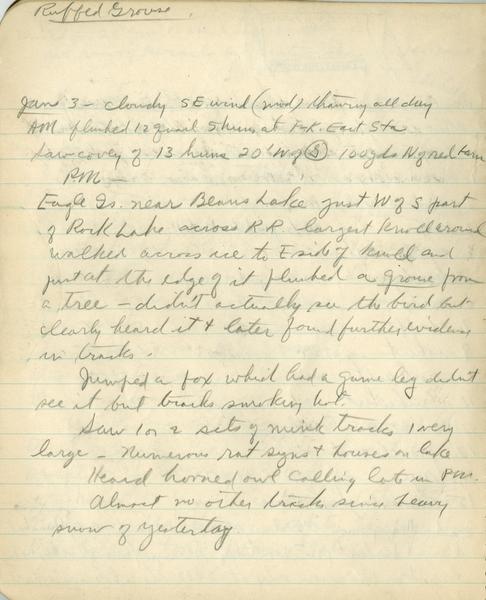 Ruffed Grouse
Jan 3 - cloudy SE wind (mod) thawing all day
AM flushed 12 quail 5 huns at F.K. East Sta
Saw covey of 13 huns 20' W of (S) 100 yds N of red barn
PM -
Eagle Gs. near Beans Lake just W of S part
of Rock Lake across R.R. largest knoll around
walked across ice to E side of knoll and
just at the edge of it flushed a grouse from
a tree - didn't actually see the bird but
clearly heard it + later found further evidence
in tracks.
Jumped a fox which had a game leg didn't
see it but tracks smoking hot.
Saw 1 or 2 sets of mink tracks 1 very
large - numerous rat signs + houses on lake
Heard horned owl calling late in PM.
Almost no other tracks since heavy
snow of yesterday